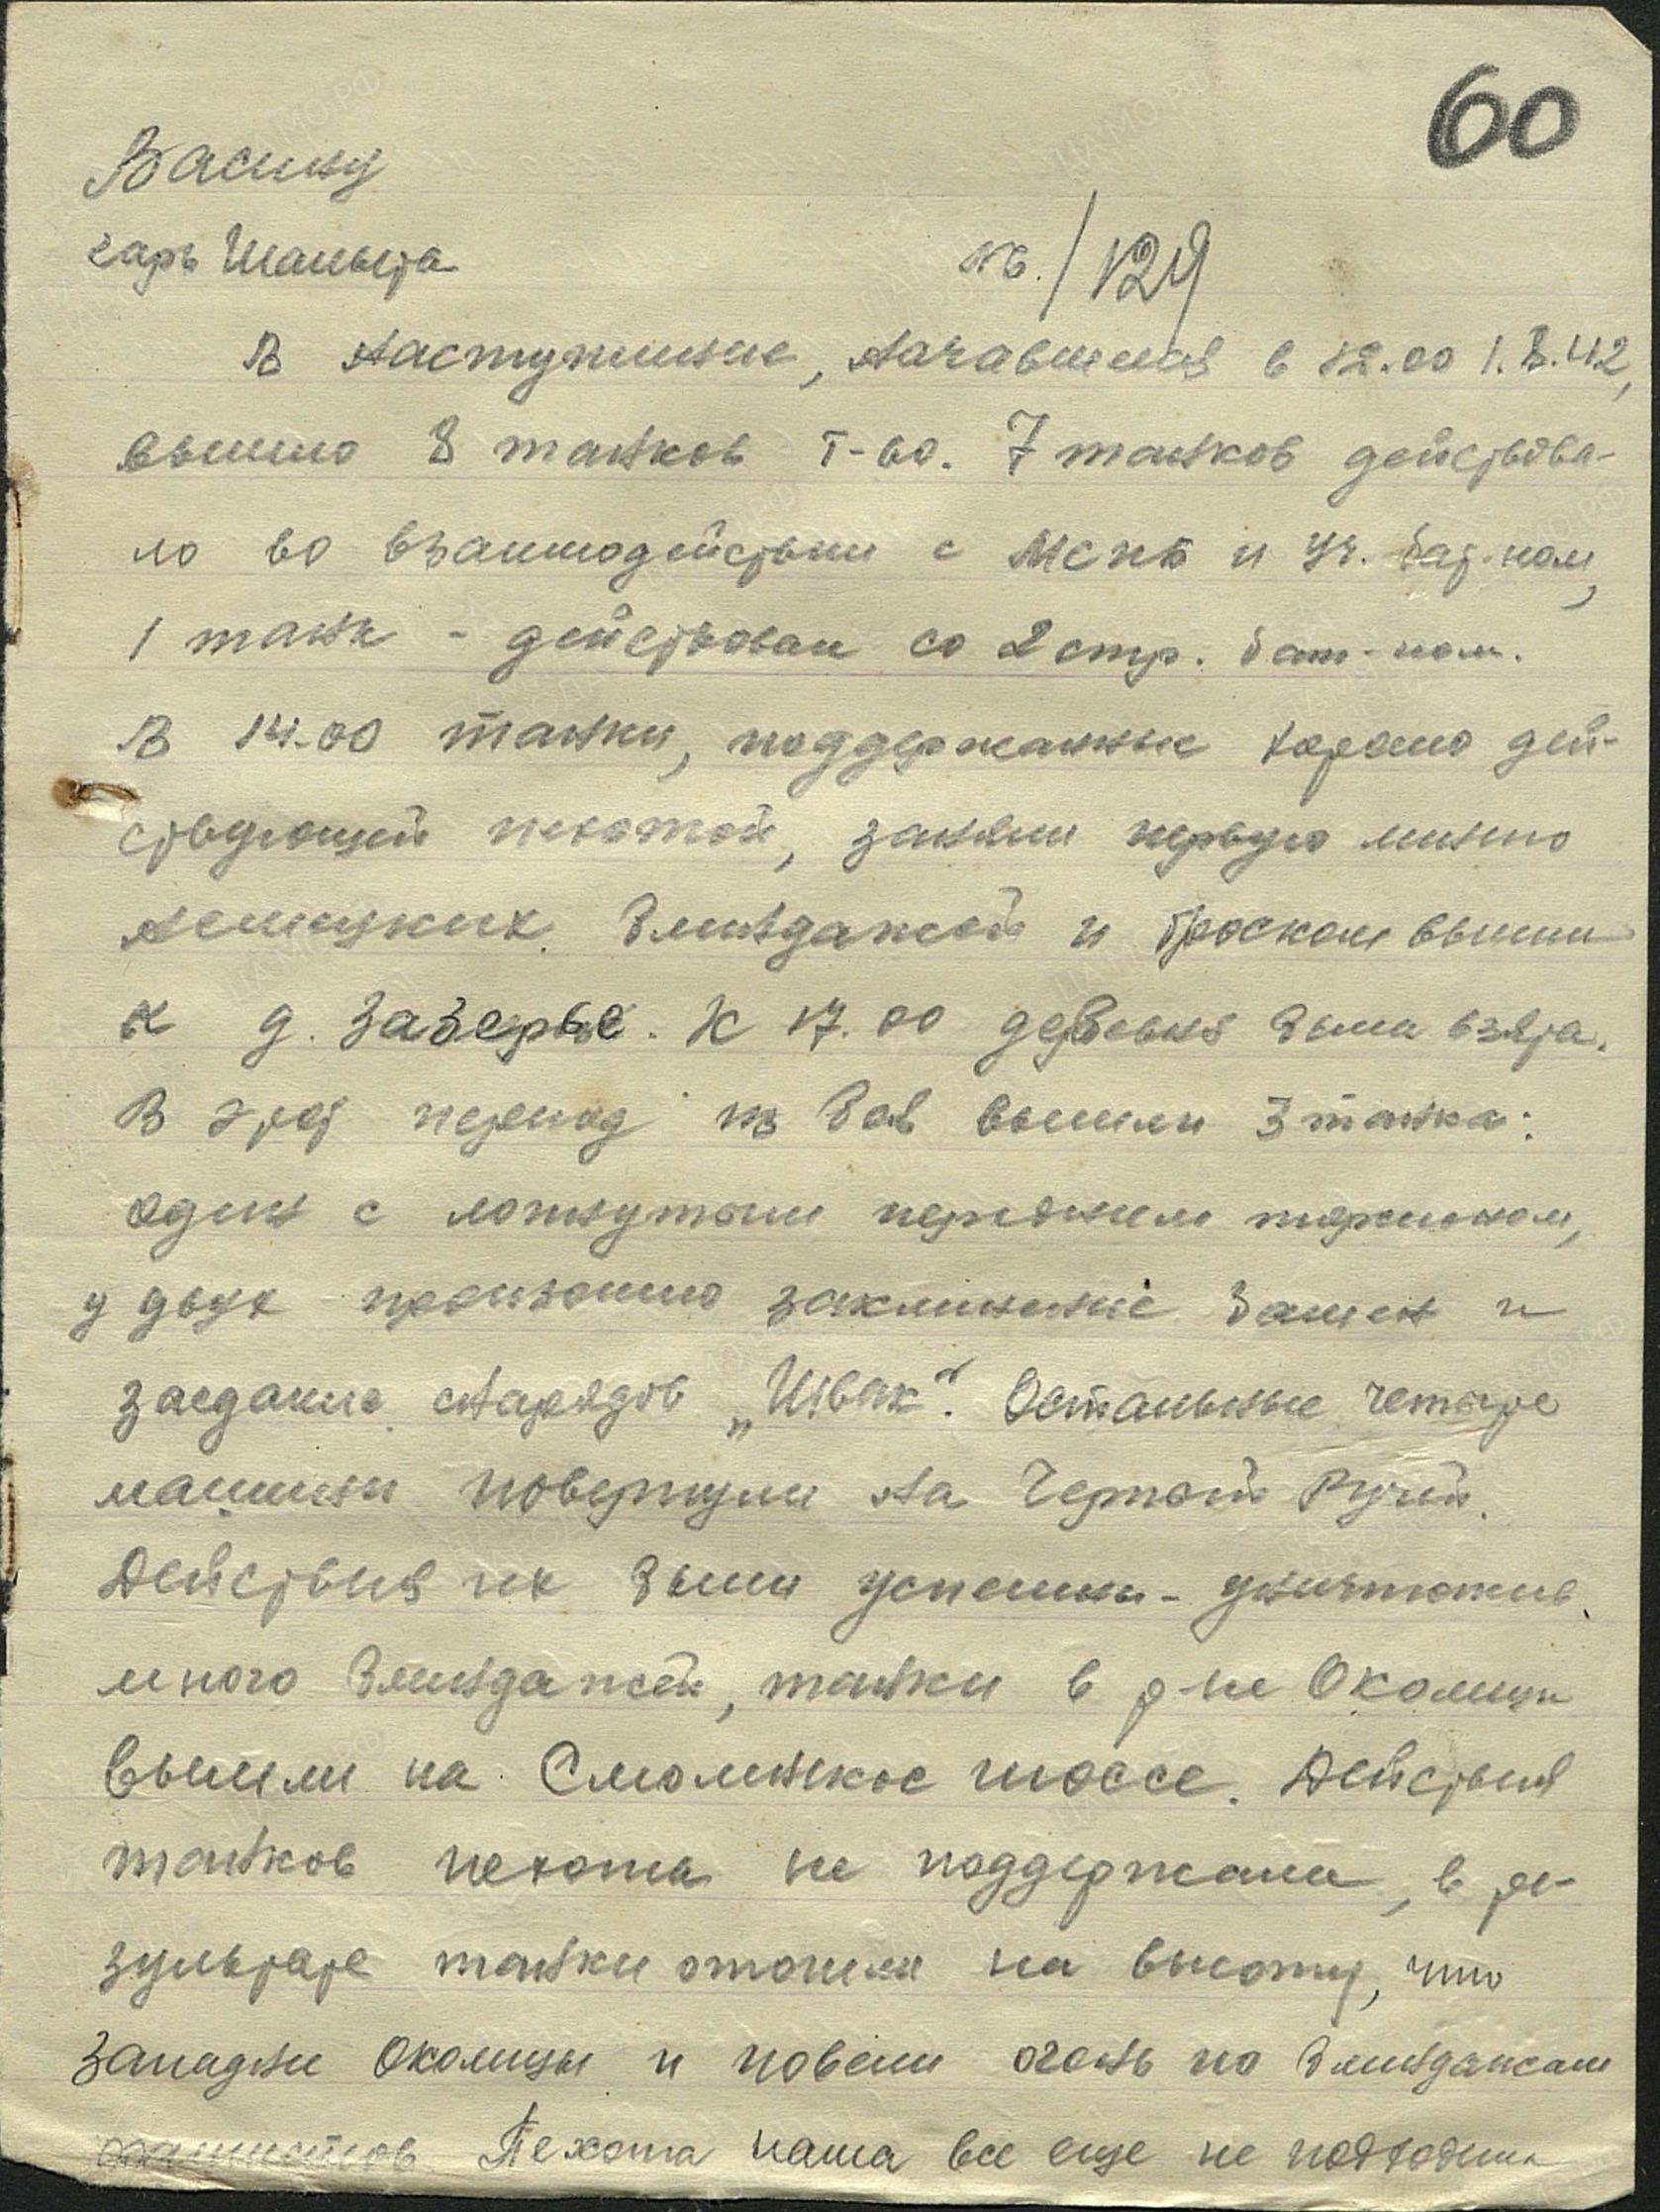 60
Васину
нб./129
В наступление, начавшееся в 12.00 1.3.42,
вышло 8 танков Т-60. 7 танков действова-
ло во взаимодействии с МСПБ и Уч. бат-ном,
1 танк - действовал со 2 стр. бат-ном.
В 14.00 танки, поддержанные хорошо дей-
ствующей пехотой, заняли первую линию
немецких блиндажей и броском вышли
к д. Заберье. К 17.00 деревня была взята.
В этот период из боя вышли 3 танка:
один с лопнутыми передним торсионом,
у двух произошло заклинение башен и
заедание снарядов „Швак“. Остальные четыре
машины повернули на Черный Ручей.
Действия их были успешны - уничтожив
много блиндажей, танки в р-не Околицы
вышли на Смоленское шоссе. Действия
танков пехота не поддержала, в ре-
зультате танки отошли на высоту, что
западнее Околицы и повели огонь по блиндажам
фашистов. Пехота наша все еще не подходила